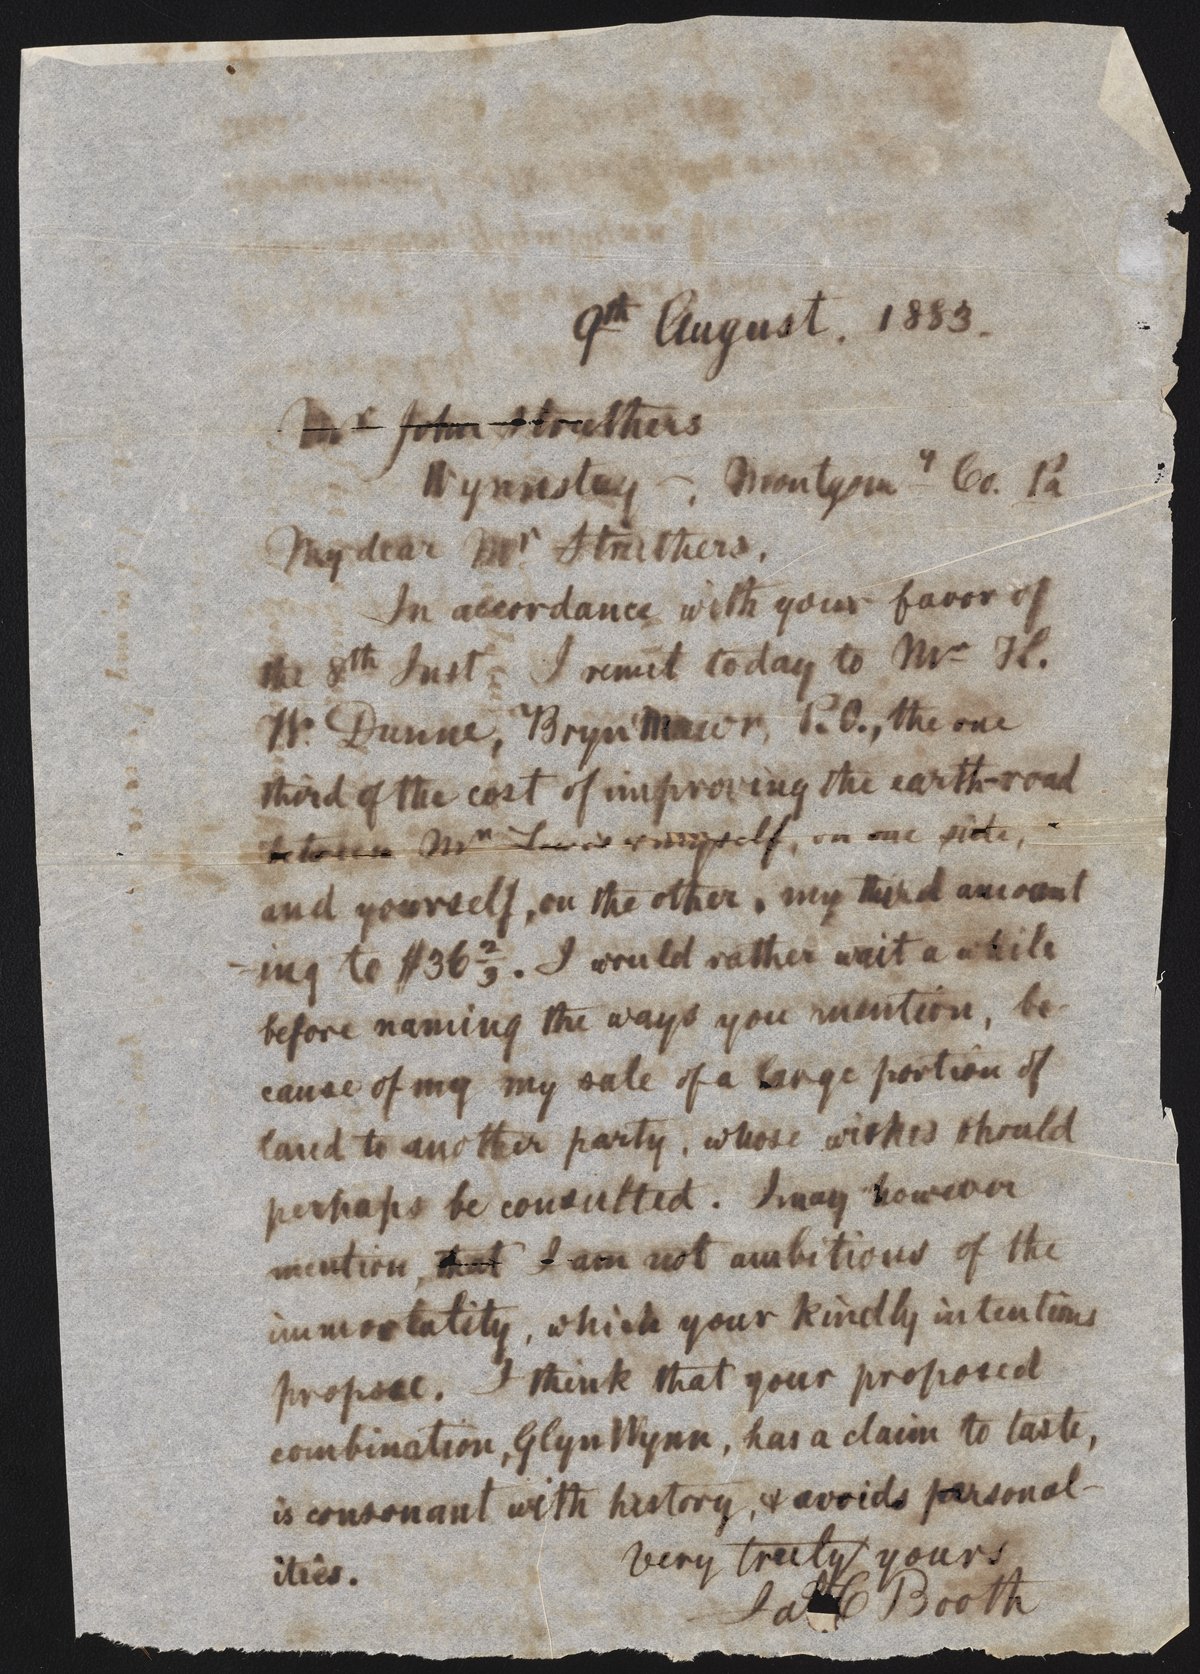 9th August. 1883.
Mr John Struthers
Wynnstay, Montgomy Co. Pa
My dear Mr Struthers,
In accordance with your favor of
the 8th Inst I remit today to Mr H.
W. Dunne, Bryn Mawr, P.O., the one
third of the cost of improving the earth-road
between Mr & myself, on one side,
and yourself, on the other, my third amount
-ing to $36 2/3. I would rather wait a while
before naming the ways you mention, be-
cause of my my sale of a large portion of
land to another party, whose wishes should
perhaps be consulted. I may however
mention, that I am not ambitious of the
immortality, which your kindly intentions
propose. I think that your proposed
combination, Glyn Wynn, has a claim to taste,
is consonant with history, & avoids personal-
ities.
Very truly yours
Jas C Booth